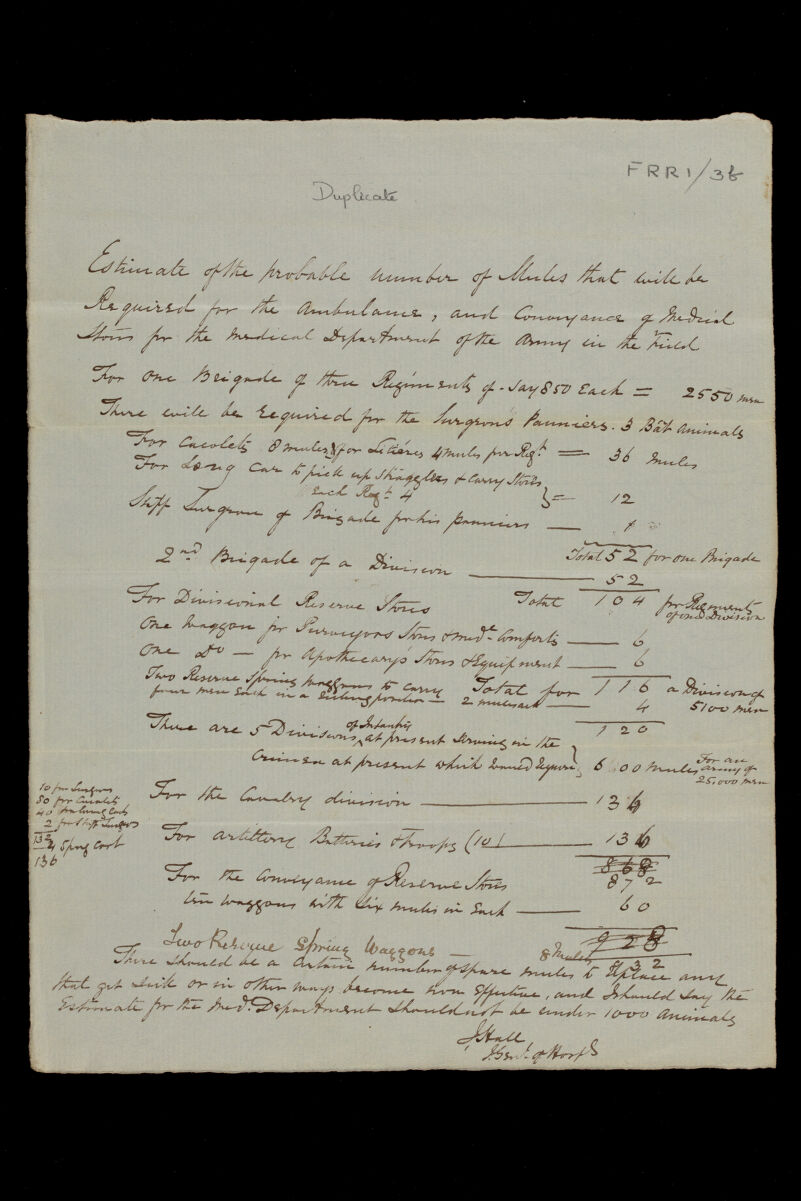 FRR1/36
Duplicate
Estimate of the probable number of Mules that will be
Required for the Ambulance, and Conveyance of Medical
Stores for the Medical Department of the Army in the Field
For one Brigade of three Regiments of - say 850 Each = 2550 men
There will be required for the Surgeons Panniers. 3 Bât Animals
For Cacolets 8 mules & for Litières 4 mules per Regt. = 36 mules
For Long Car to pick up Stragglers & Carry Stores
Each Regt. 4 } = 12
Staff Surgeon of Brigade for his panniers — 1
Total 52 for one Brigade
2nd Brigade of a Division — 52
Total 104 for Regiments of one Division
For Divisional Reserve Stores
One Waggon for Purveyors Stores & Medl. Comforts — 6
One Do — for Apothecary's Stores & Equipment — 6
Total for 116 a Division of 5100 men
Two Reserve Spring Waggons to carry
four men Each in a sitting position — 2 mules each — 4
120
There are 5 Divisions of Infantry at present serving in the
Crimea at present which would require } 600 mules For an army of 25,000 men
For the Cavalry division — 136
10 for Surgeons
80 for Cacolets
40 for Long Carts
2 for Staff Surgeons
132
4 Spring Cart
136
For Artillery Batteries & Troops (10) — 136
868
872
For the Conveyance of Reserve Stores
ten waggons with six mules in Each — 60
928
Two Reserve Spring Waggons — 8 Mules
932
There should be a certain number of spare mules to replace any
that get sick or in other ways become non effective, and I should say the
Estimate for the Med. Department should not be under 1000 Animals
J Hall
I. Genl. of Hospls